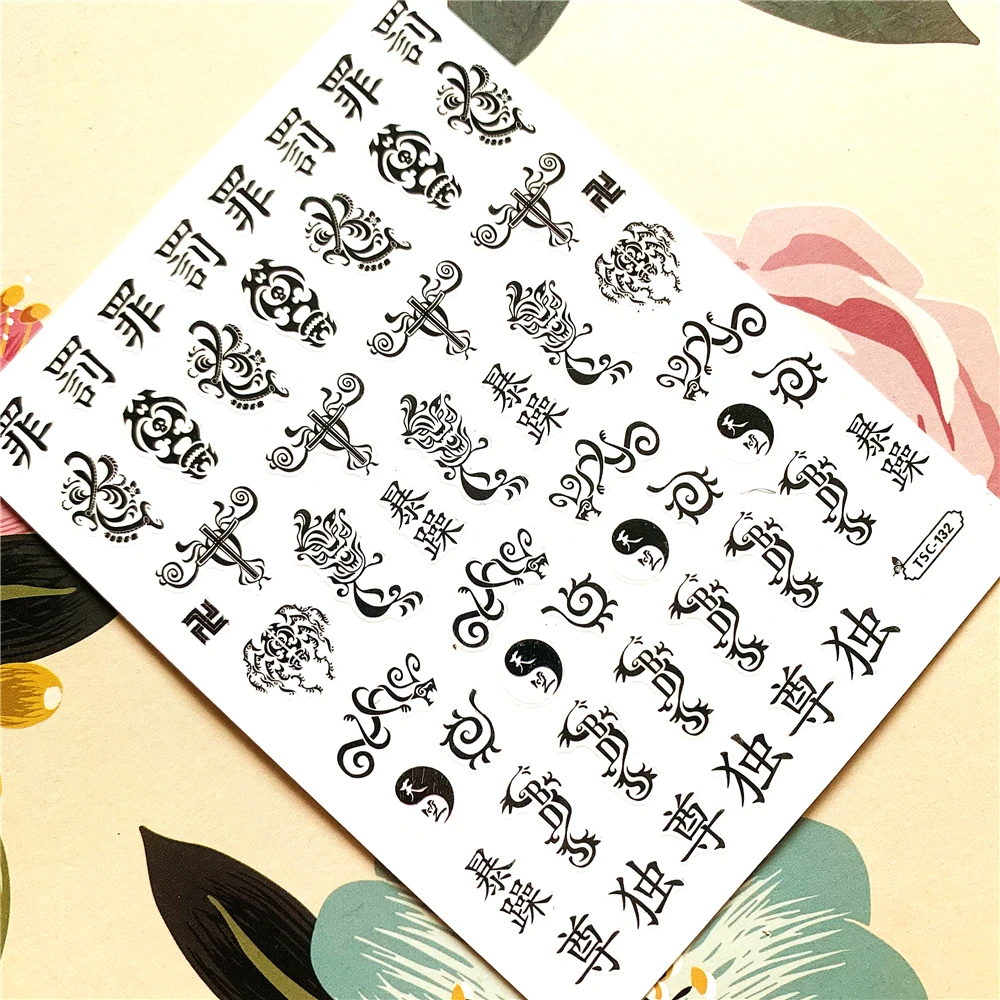 罪 罚 罪 罚 罪 罚 罪 罚
暴躁
暴躁
天
天
天
天
暴躁
暴躁
TSC-132
尊 独 尊 独 尊 独